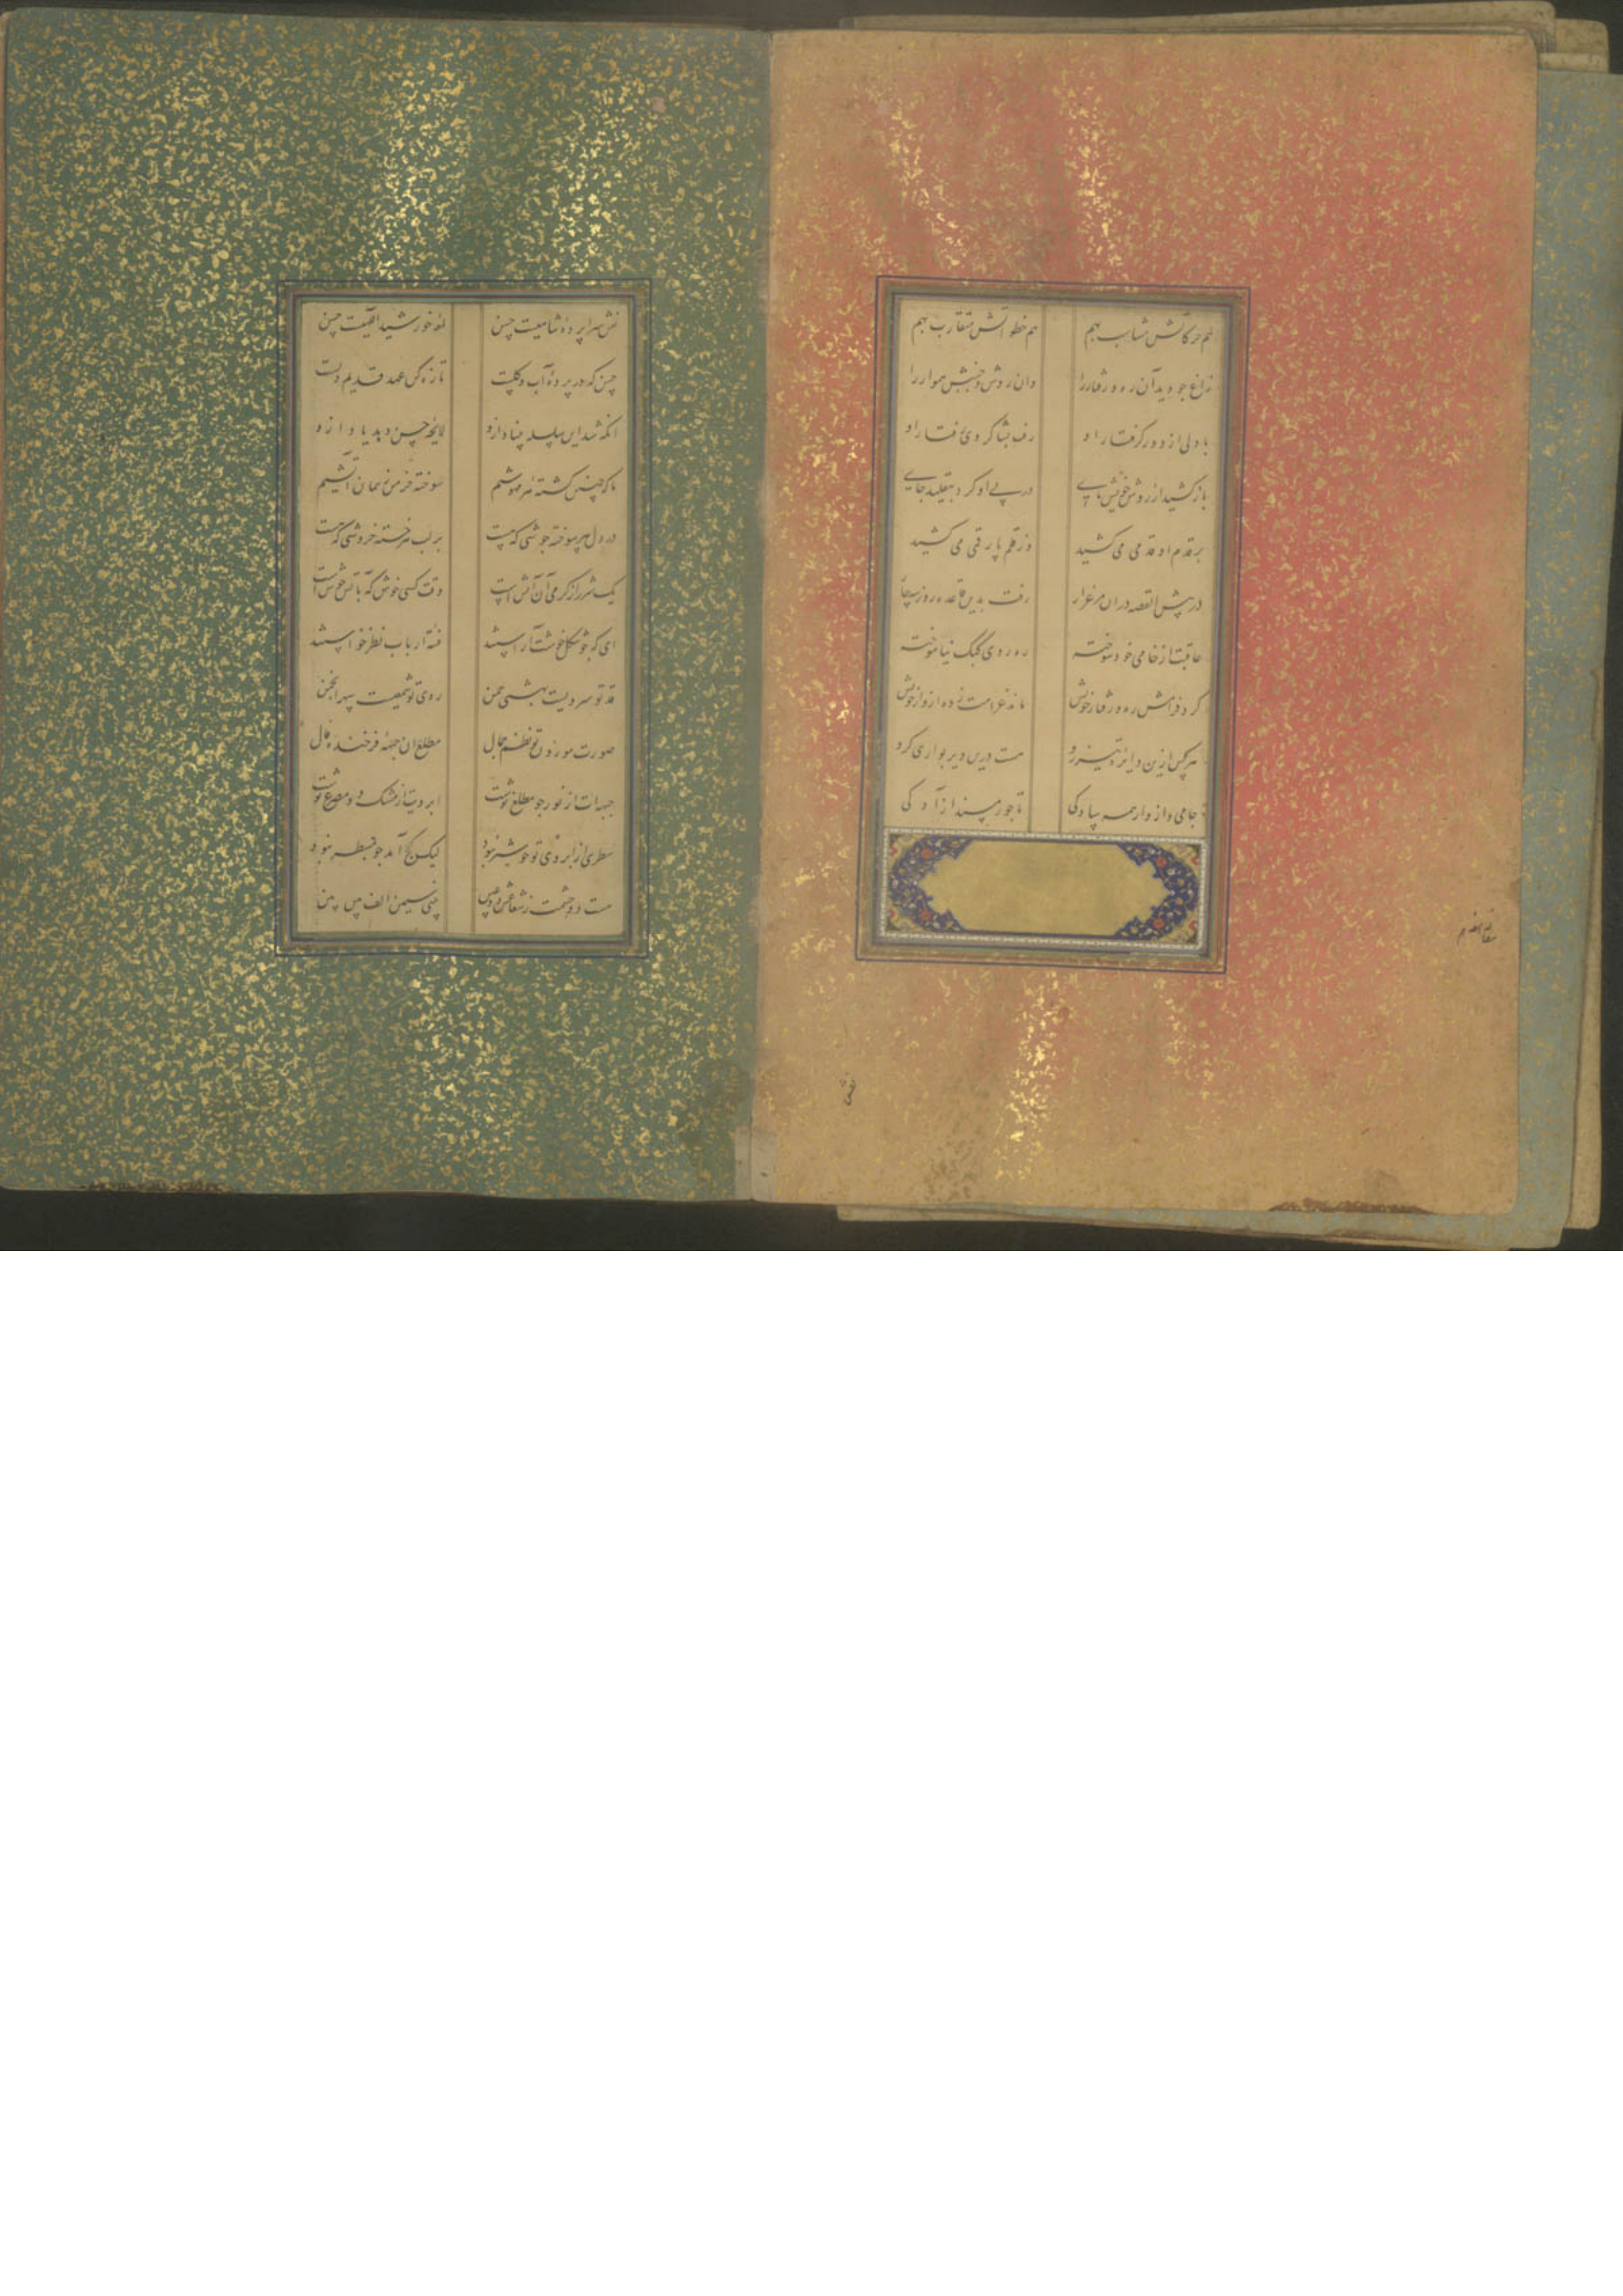 هم حرکاتش متناسب بهم هم خطواتش متقارب بهم
زاغ چو دید آن ره و رفتار را وان روش و جنبش هموار را
با دلی از دور گرفتار او رفت بشاگردی رفتار او
باز کشید از روش خویش پای در پی او کرد بتقلید جای
بر قدم او قدمی می کشید وز قلم پا رقمی می کشید
در پیش القصه دران مرغزار رفت بدین قاعده روزی سه چار
عاقبت از خامی خود سوخته ره روی کبک نیاموخته
کرد فرامش ره و رفتار خویش ماند غرامت زده از کار خویش
هر کس ازین دایره تیزرو هست درین دیر
جامی و از وا همه سادگی
مقاله هفدهم
نقش سراپرده شاهیست حسن لمعه خورشید الهیست حسن
حسن که در پرده آب و گلست تازه کن عهد قدیم دلست
آنکه شد این سلسله جنبان او لایحه حسن دید
ما که چنین کشته هر مهوشیم سوخته خرمن ز همان آتشیم
در دل هر سوخته جوشی که هست بر لب هر خسته خروشی که هست
یک شرر از گرمی آن آتش است وقت کسی خوش که بآتش خوش است
ای که چو شکل خوشت آراستند فتنه ارباب نظر خواستند
قد تو سرویست بهشتی چمن روی تو شمعیست سپهر انجمن
صورت موزون تو نظم جمال مطلع آن جبهه فرخنده فال
جبهه ات از نور چو مطلع نوشت ابرویت از مشک دو مصرع نوشت
سطری از ابروی تو خوشتر نبود لیک کج آمد چو بمسطر نبود
هست دو چشمت ز شعاع بینی سیمین الف